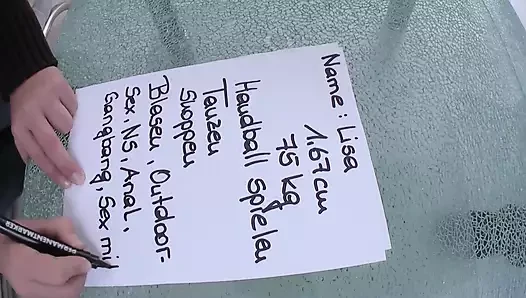 Name: Lisa
1.67cm
75 kg
Handball spielen
Tanzen
Shoppen
Blasen, Outdoor-
Sex, NS, Anal,
Gangbang, Sex mi
PERMANENTMARKER